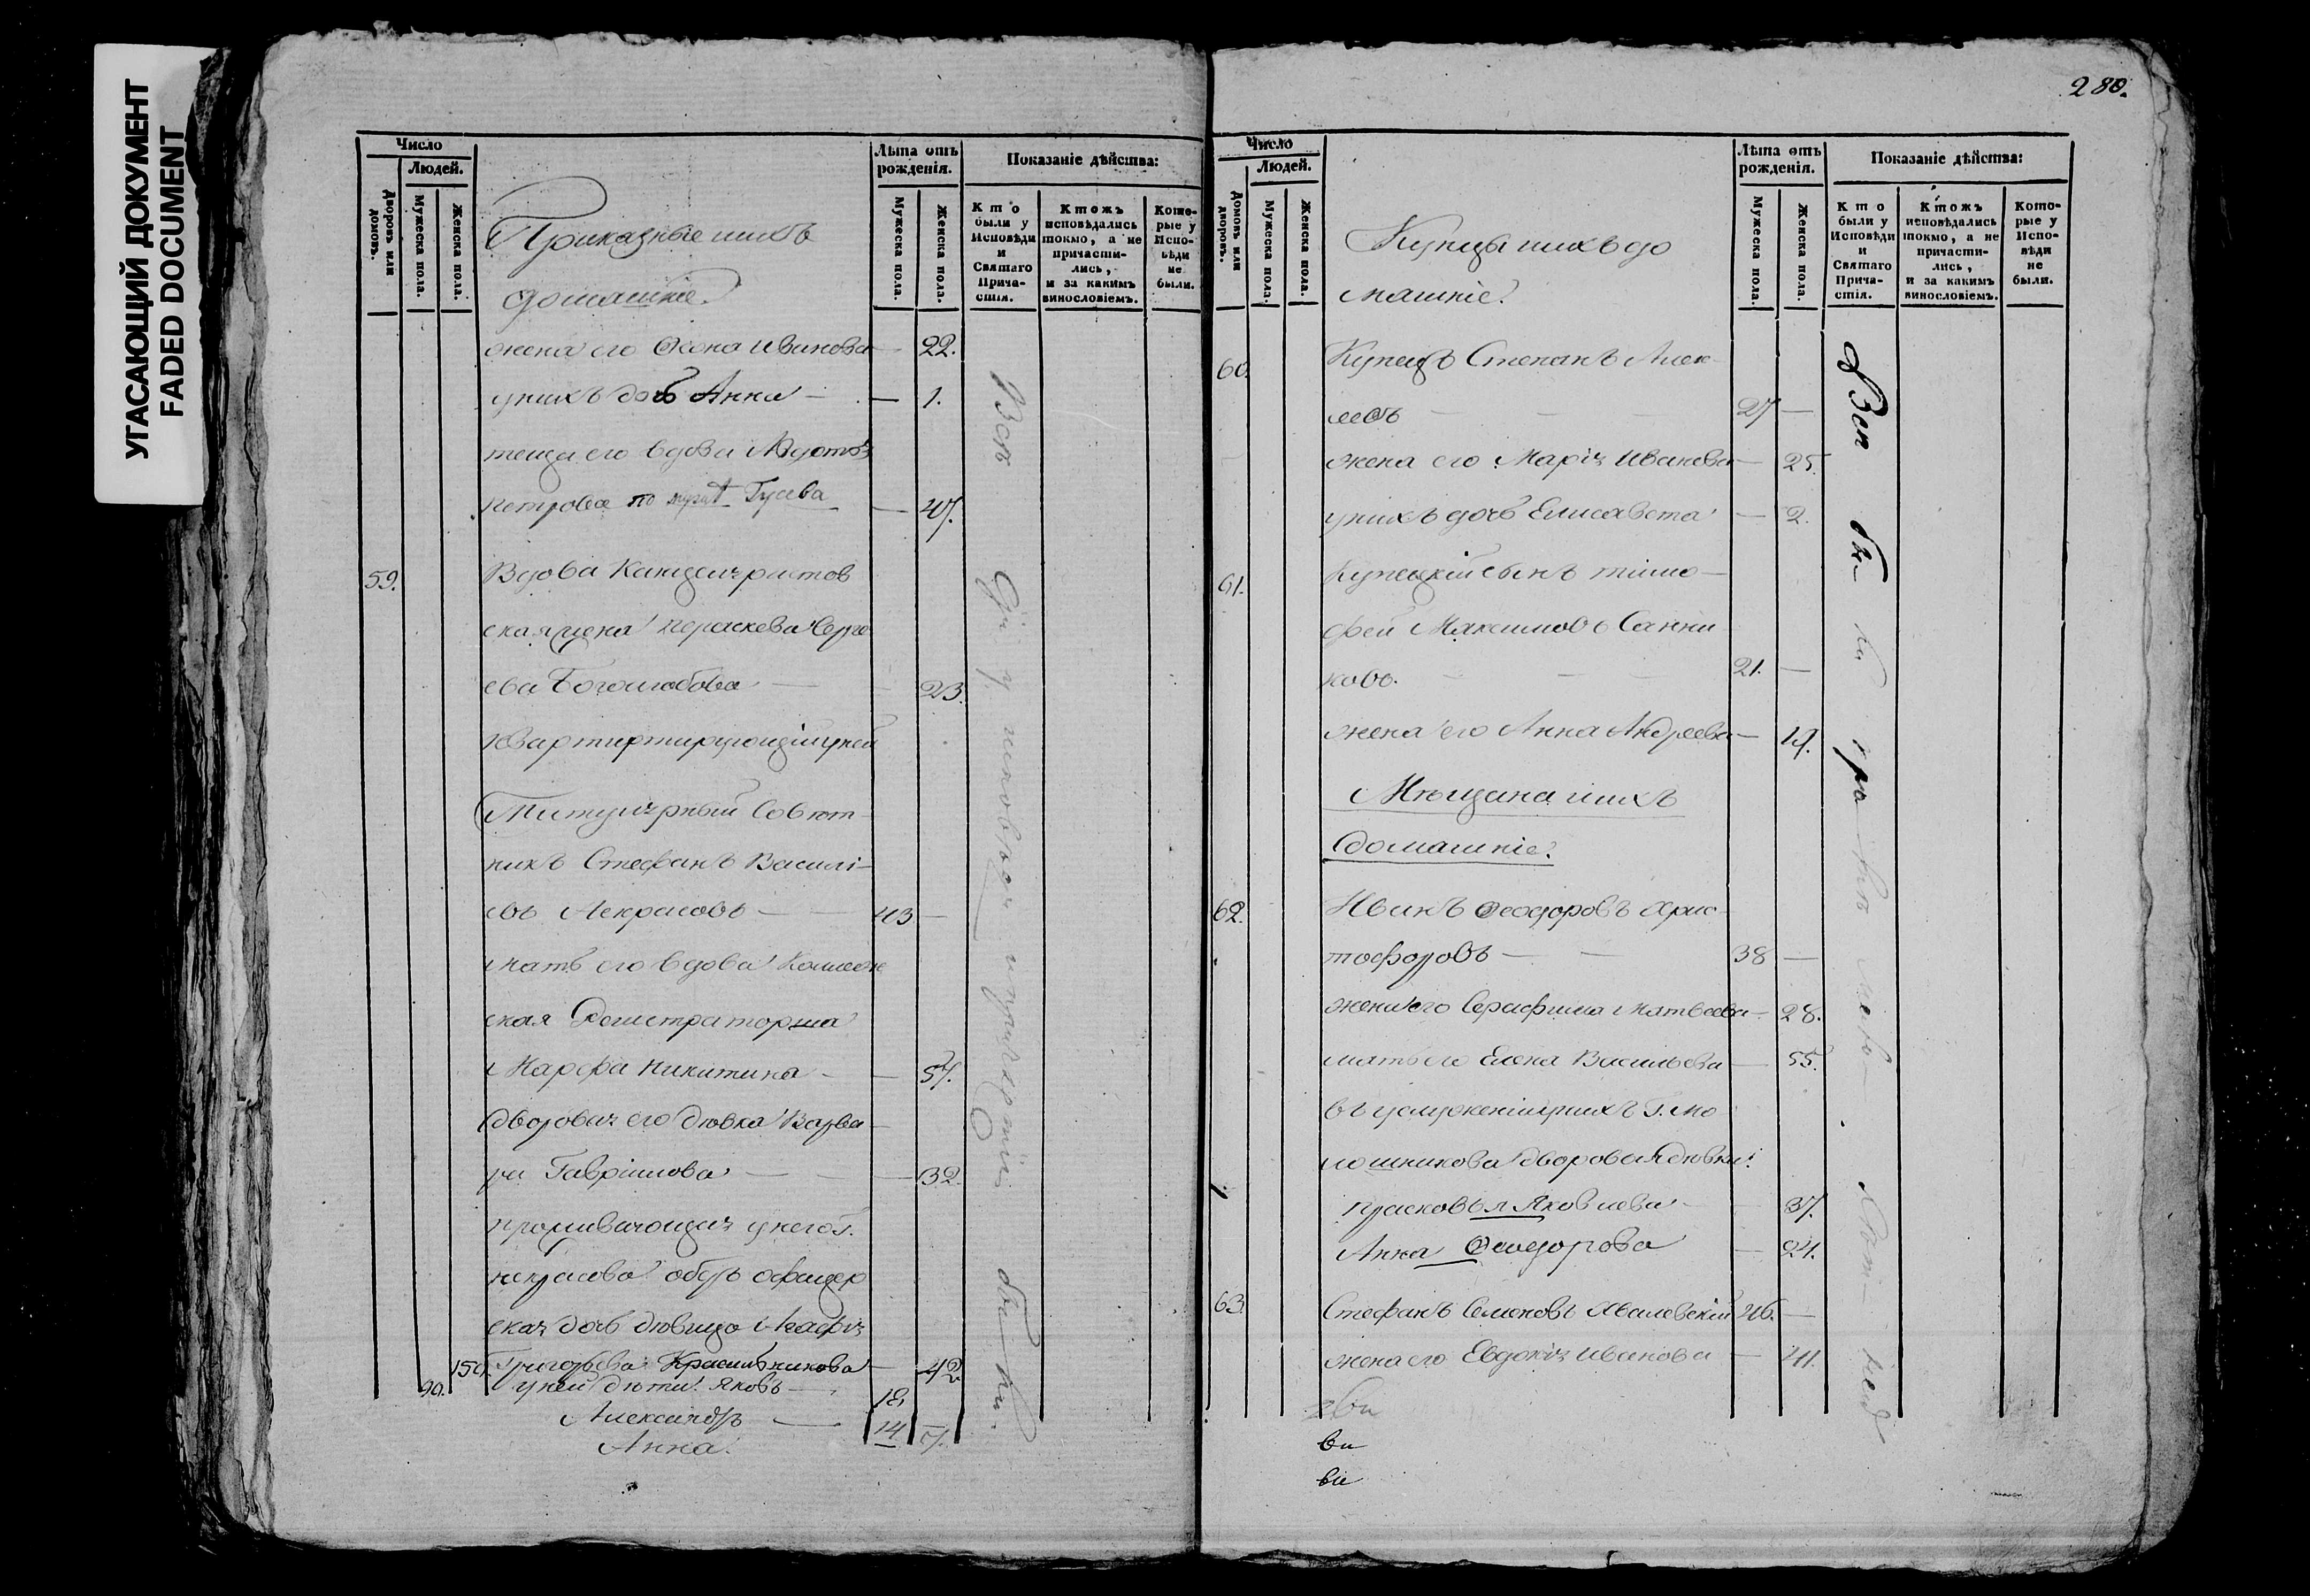 УГАСАЮЩИЙ ДОКУМЕНТ
FADED DOCUMENT
Число
Людей.
Дворовъ или домовъ.
Мужеска пола.
Женска пола.
Приказные и ихъ
домашніе.
Лѣта отъ рожденія.
Мужеска пола.
Женска пола.
Показаніе дѣйства:
Кто были у Исповѣди и Святаго Прича-стія.
Ктожъ исповѣдались токмо, а не причасти-лись, и за какимъ винословіемъ.
Кото-рые у Испо-вѣди не были.
жена его Ѳеона Иванова — 22.
у нихъ дочь Анна — 1.
теща его вдова Авдотья
Петрова по мужѣ Гусева — 47.
59. Вдова Канцеляристов
ская жена Параскева Серге
ева Боголюбова — 23.
Квартиртирующій у ней
Титулярный Совѣт-
никъ Стефанъ Василі-
евъ Некрасовъ — 43 —
мать его вдова Коллеж
ская Регистраторша
Марфа Никитина — 57.
дворовая его дѣвка Варва-
ра Гавріилова — 32.
проживающая у него г.
Некрасова оберъ офицер
ская дочь дѣвица
Григорьева Красильникова — 42
у ней дѣти: Яковъ — 18
Александръ — 14
Анна. 7.
90.
Всѣ Сіи у исповѣди и причастія были.
280.
Число
Людей.
Домовъ или дворовъ.
Мужеска пола.
Женска пола.
Купцы и ихъ до
машніе.
Лѣта отъ рожденія.
Мужеска пола.
Женска пола.
Показаніе дѣйства:
Кто были у Исповѣди и Святаго Прича-стія.
Ктожъ исповѣдались токмо, а не причасти-лись, и за какимъ винословіемъ.
Кото-рые у Испо-вѣди не были.
60. Купецъ Степанъ Алек-
27 —
жена его Марія Иванова — 25.
у нихъ дочь Елисавета — 2.
61. Купецкій сынъ Тимо-
фей Максимовъ Санни
ковъ. — 21. —
жена его Анна Андреева — 19.
Мѣщана и ихъ
домашніе.
62. Иванъ Ѳеодоровъ Хрис-
тофоровъ — 38 —
жена его Серафима Матвеева — 28.
мать его Елена Васильева — 55.
въ услуженіи у нихъ Г. Мо
лошникова дворовыя дѣвки:
Прасковья Яковлева — 37.
Анна Ѳеодорова — 24.
63. Стефанъ Семеновъ Хвалевскій 46. —
жена его Евдокія Иванова — 41.
ви
ви